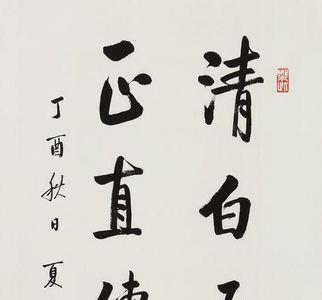 清白
正直
丁酉秋日夏